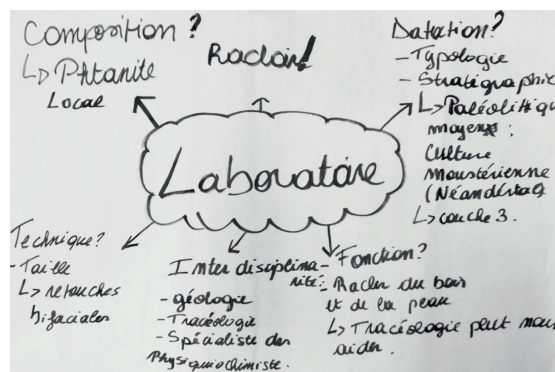 Composition ?
↳ Phtanite
Local
Racloir!
Datation?
- Typologie
- Stratigraphie
↳ Paléolitiqu
moyen :
Culture
moustérienne
(Néandertal)
↳ couche 3.
Laboratoire
Technique?
- Taille
↳ retouches
bifaciales
Interdisciplina-
rité:
- géologie
- Tracéologie
- Spécialiste des
physiquiochimiste.
Fonction?
- Racler du bois
et de la peau
↳ Tracéologie peut nous
aider.